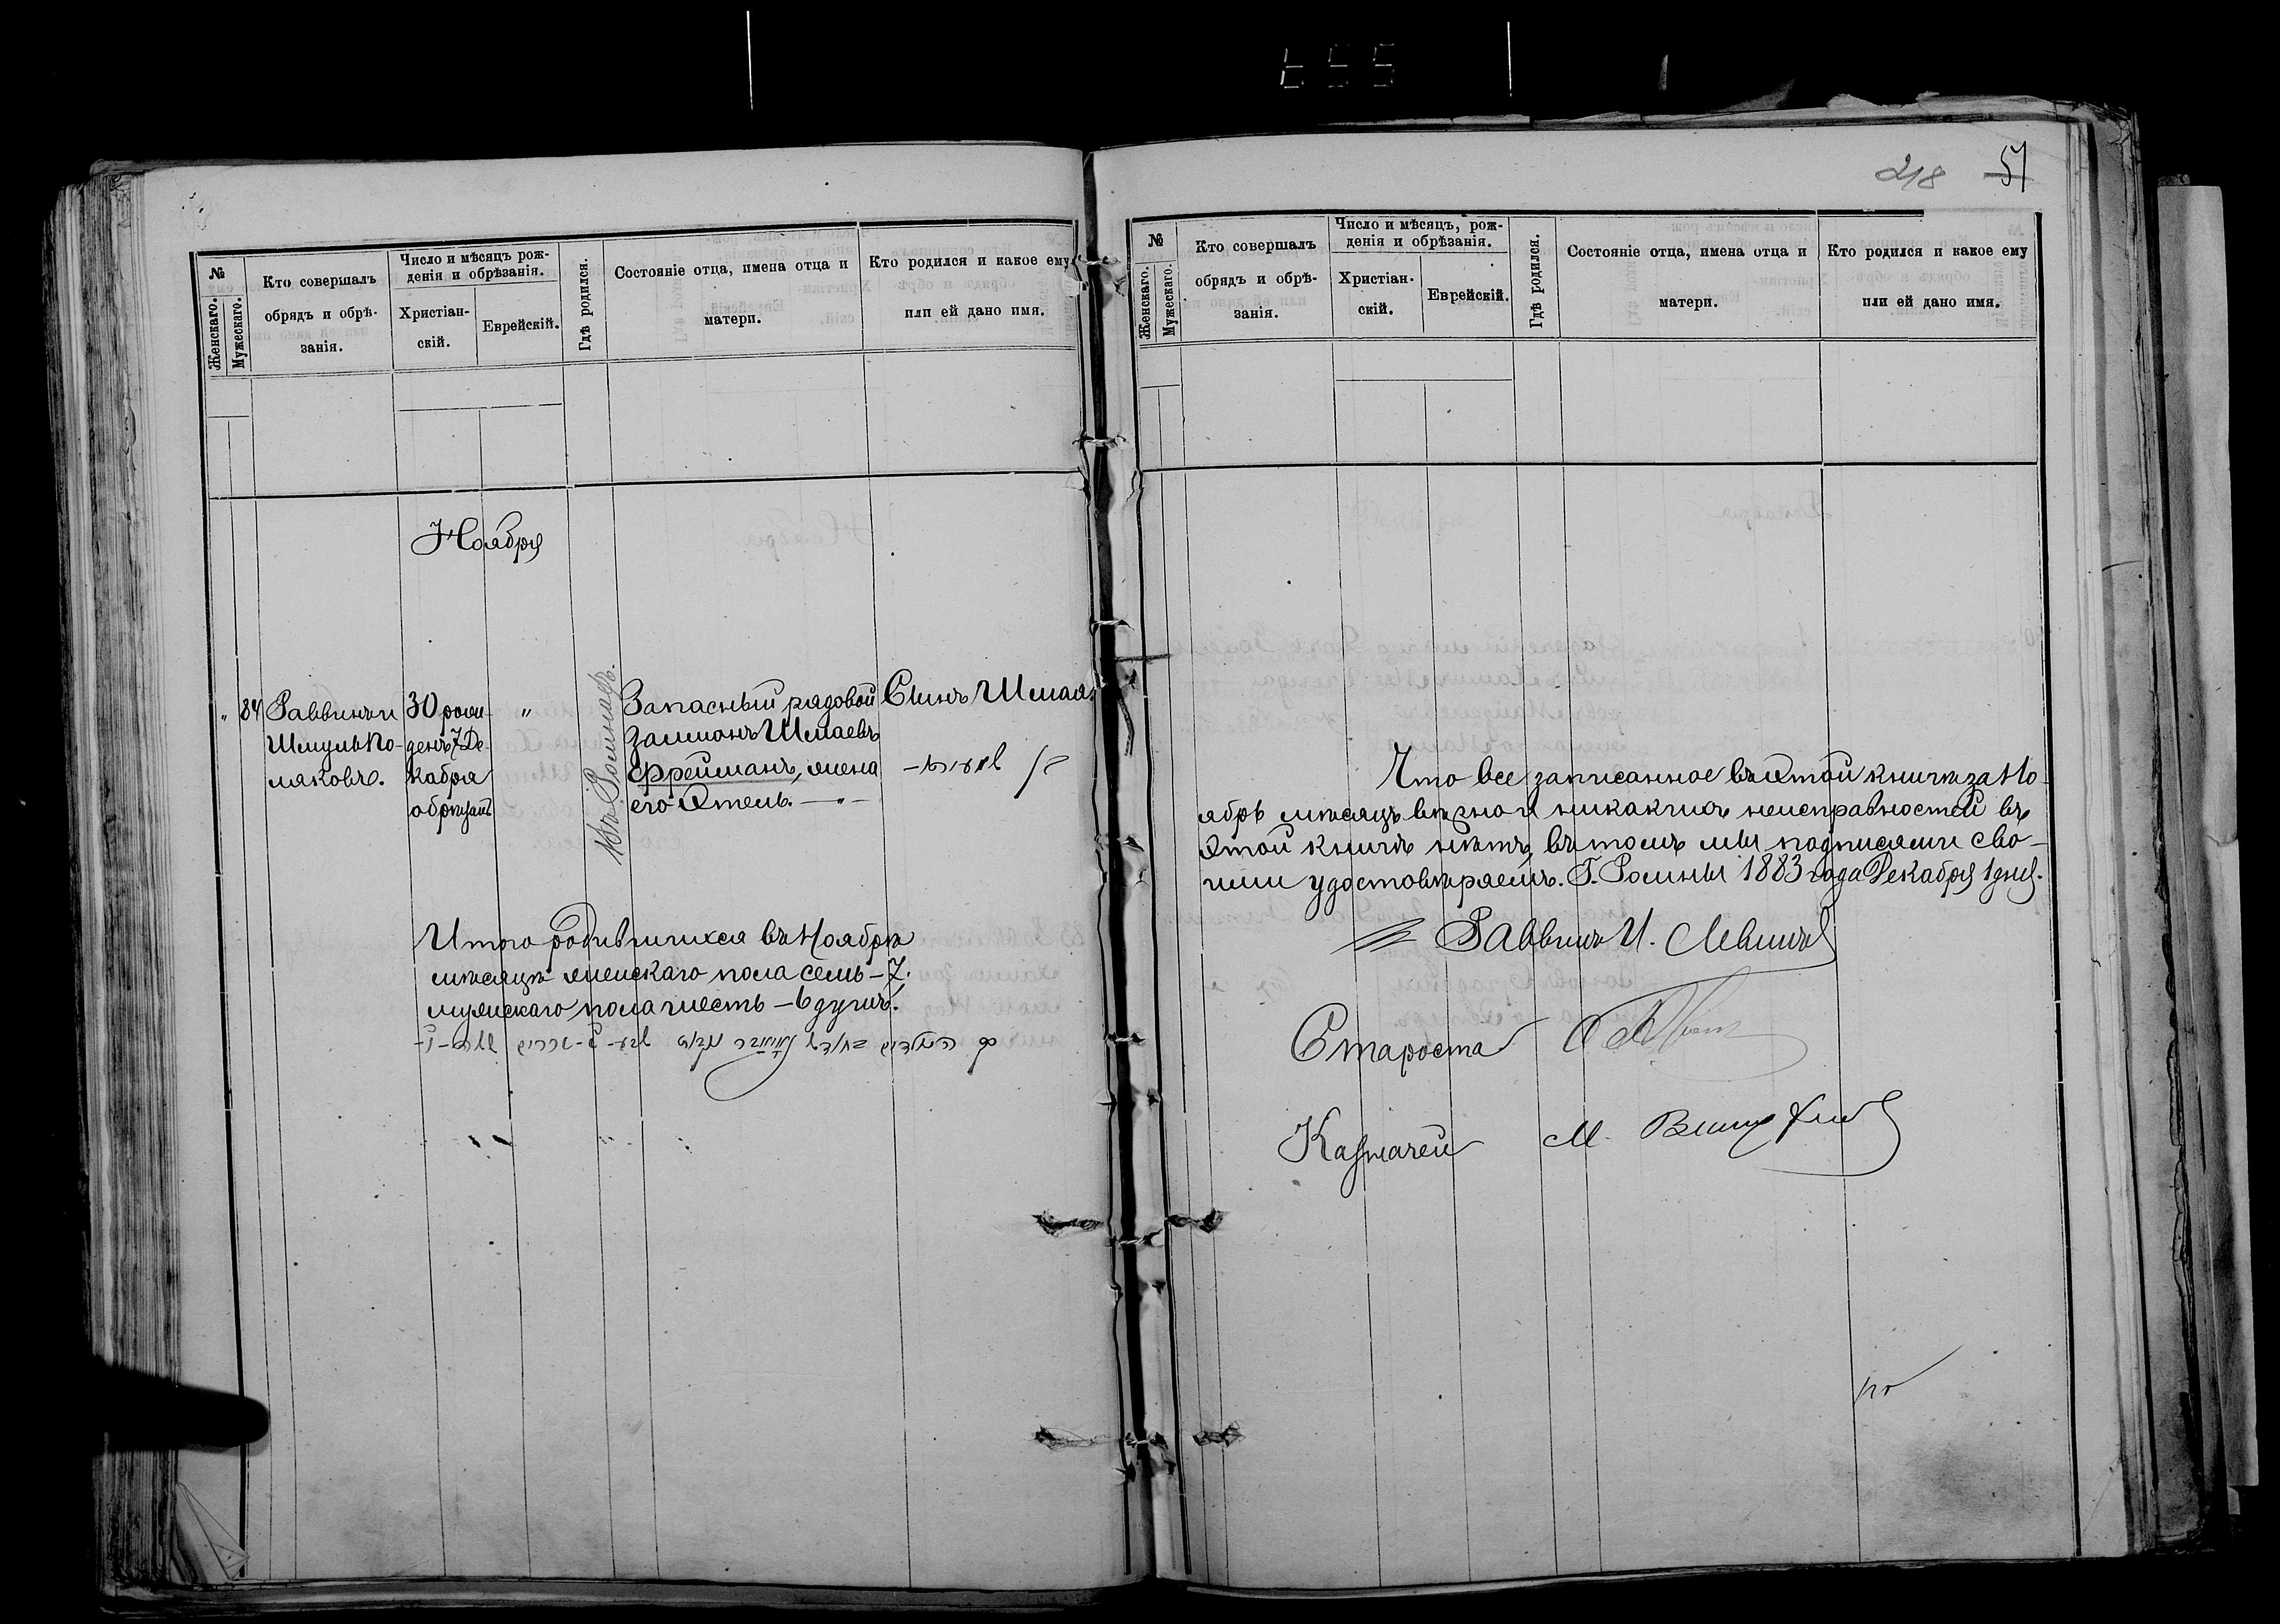 №
Женскаго.
Мужескаго.
Кто совершалъ
обрядъ и обрѣ-
занія.
Число и мѣсяцъ рож-
денія и обрѣзанія.
Христіан-
скій.
Еврейскій.
Гдѣ родился.
Состояніе отца, имена отца и
матери.
Кто родился и какое ему
или ей дано имя.
Ноября
" 84
Раввинъ и
Шмуль По-
ляковъ.
30 рож-
денъ 7 Де-
кабря
обрѣзанъ
"
въ Ромнахъ.
Запасный рядовой
Залманъ Шмаевъ
Фрейманъ, жена
его Этель. — " —
Сынъ Шмая
Итого родившихся въ Ноябрѣ
мѣсяцѣ женскаго пола семь — 7,
мужескаго пола шесть — 6 душъ.
218 51
№
Женскаго.
Мужескаго.
Кто совершалъ
обрядъ и обрѣ-
занія.
Число и мѣсяцъ, рож-
денія и обрѣзанія.
Христіан-
скій.
Еврейскій.
Гдѣ родился.
Состояніе отца, имена отца и
матери.
Кто родился и какое ему
или ей дано имя.
Что все записанное въ этой книгѣ за Но-
ябрь мѣсяцъ вѣрно и никакихъ неисправностей въ
этой книгѣ нѣтъ, въ томъ мы подписями сво-
ими удостовѣряемъ. Г. Ромны 1883 года Декабря 1 дня.
Раввинъ И. Левинъ
Староста
Казначей М.